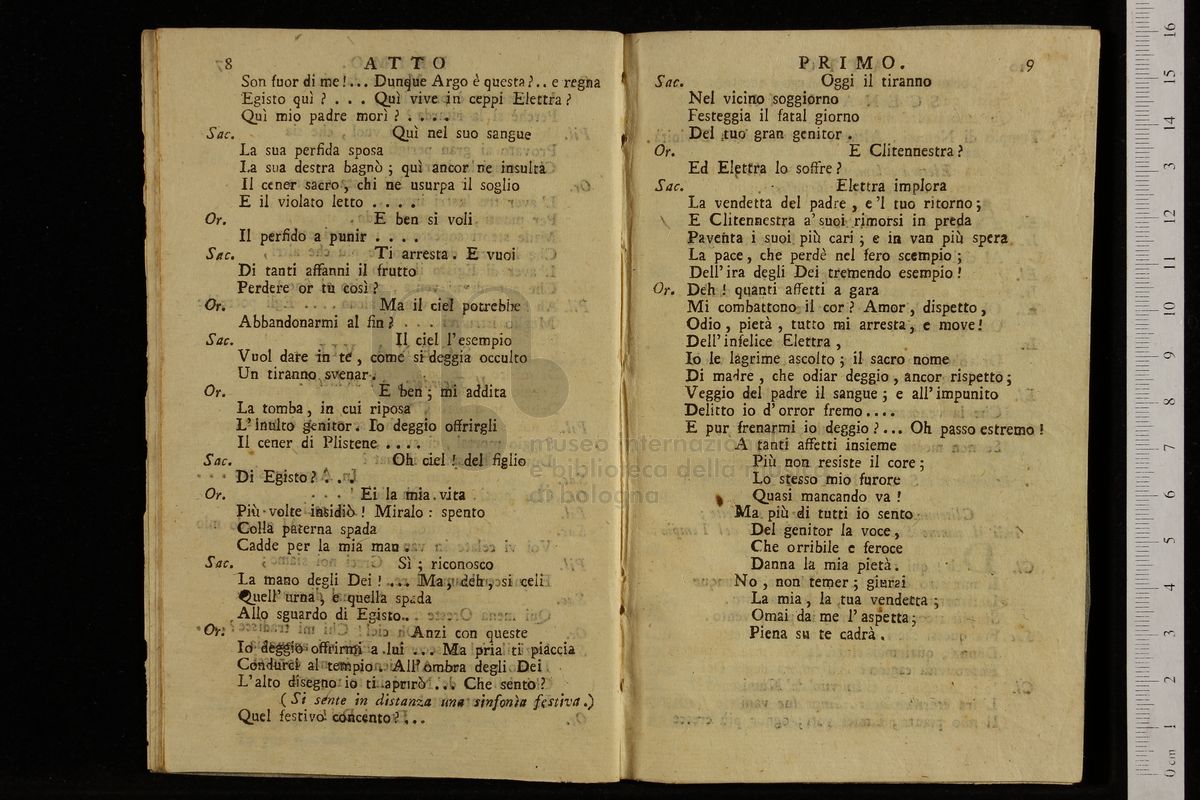 8 ATTO
Son fuor di me!... Dunque Argo è questa?.. e regna
Egisto quì ? . . . Quì vive in ceppi Elettra ?
Quì mio padre morì ? . . . .
Sac. Quì nel suo sangue
La sua perfida sposa
La sua destra bagnò ; quì ancor ne insulta
Il cener sacro , chi ne usurpa il soglio
E il violato letto . . . .
Or. E ben si voli
Il perfido a punir . . . .
Sac. Ti arresta . E vuoi
Di tanti affanni il frutto
Perdere or tu così ?
Or. Ma il ciel potrebbe
Abbandonarmi al fin ? . . .
Sac. Il ciel l'esempio
Vuol dare in te , come si deggia occulto
Un tiranno svenar .
Or. E ben ; mi addita
La tomba , in cui riposa
L'inulto genitor . Io deggio offrirgli
Il cener di Plistene . . . .
Sac. Oh ciel ! del figlio
Di Egisto ? . . .
Or. Ei la mia vita
Più volte insidiò ! Miralo : spento
Colla paterna spada
Cadde per la mia man .
Sac. Sì ; riconosco
La mano degli Dei ! ... Ma , deh , si celi
Quell' urna , e quella spada
Allo sguardo di Egisto ..
Or. Anzi con queste
Io deggio offrirmi a lui ... Ma pria ti piaccia
Condurci al tempio . All' ombra degli Dei
L'alto disegno io ti aprirò ... Che sento ?
( Si sente in distanza una sinfonìa festiva .)
Quel festivo concento ? ...
PRIMO. 9
Sac. Oggi il tiranno
Nel vicino soggiorno
Festeggia il fatal giorno
Del tuo gran genitor .
Or. E Clitennestra ?
Ed Elettra lo soffre ?
Sac. Elettra implora
La vendetta del padre , e 'l tuo ritorno ;
E Clitennestra a' suoi rimorsi in preda
Paventa i suoi più cari ; e in van più spera
La pace , che perdè nel fero scempio ;
Dell' ira degli Dei tremendo esempio !
Or. Deh ! quanti affetti a gara
Mi combattono il cor ? Amor , dispetto ,
Odio , pietà , tutto mi arresta , e move !
Dell' infelice Elettra ,
Io le lagrime ascolto ; il sacro nome
Di madre , che odiar deggio , ancor rispetto ;
Veggio del padre il sangue ; e all' impunito
Delitto io d' orror fremo ....
E pur frenarmi io deggio ? ... Oh passo estremo !
A tanti affetti insieme
Più non resiste il core ;
Lo stesso mio furore
Quasi mancando va !
Ma più di tutti io sento
Del genitor la voce ,
Che orribile e feroce
Danna la mia pietà .
No , non temer ; giurai
La mia , la tua vendetta ;
Omai da me l' aspetta ;
Piena su te cadrà .
museo internazionale
e biblioteca della musica
di bologna
0 cm 1 2 3 4 5 6 7 8 9 10 11 12 13 14 15 16